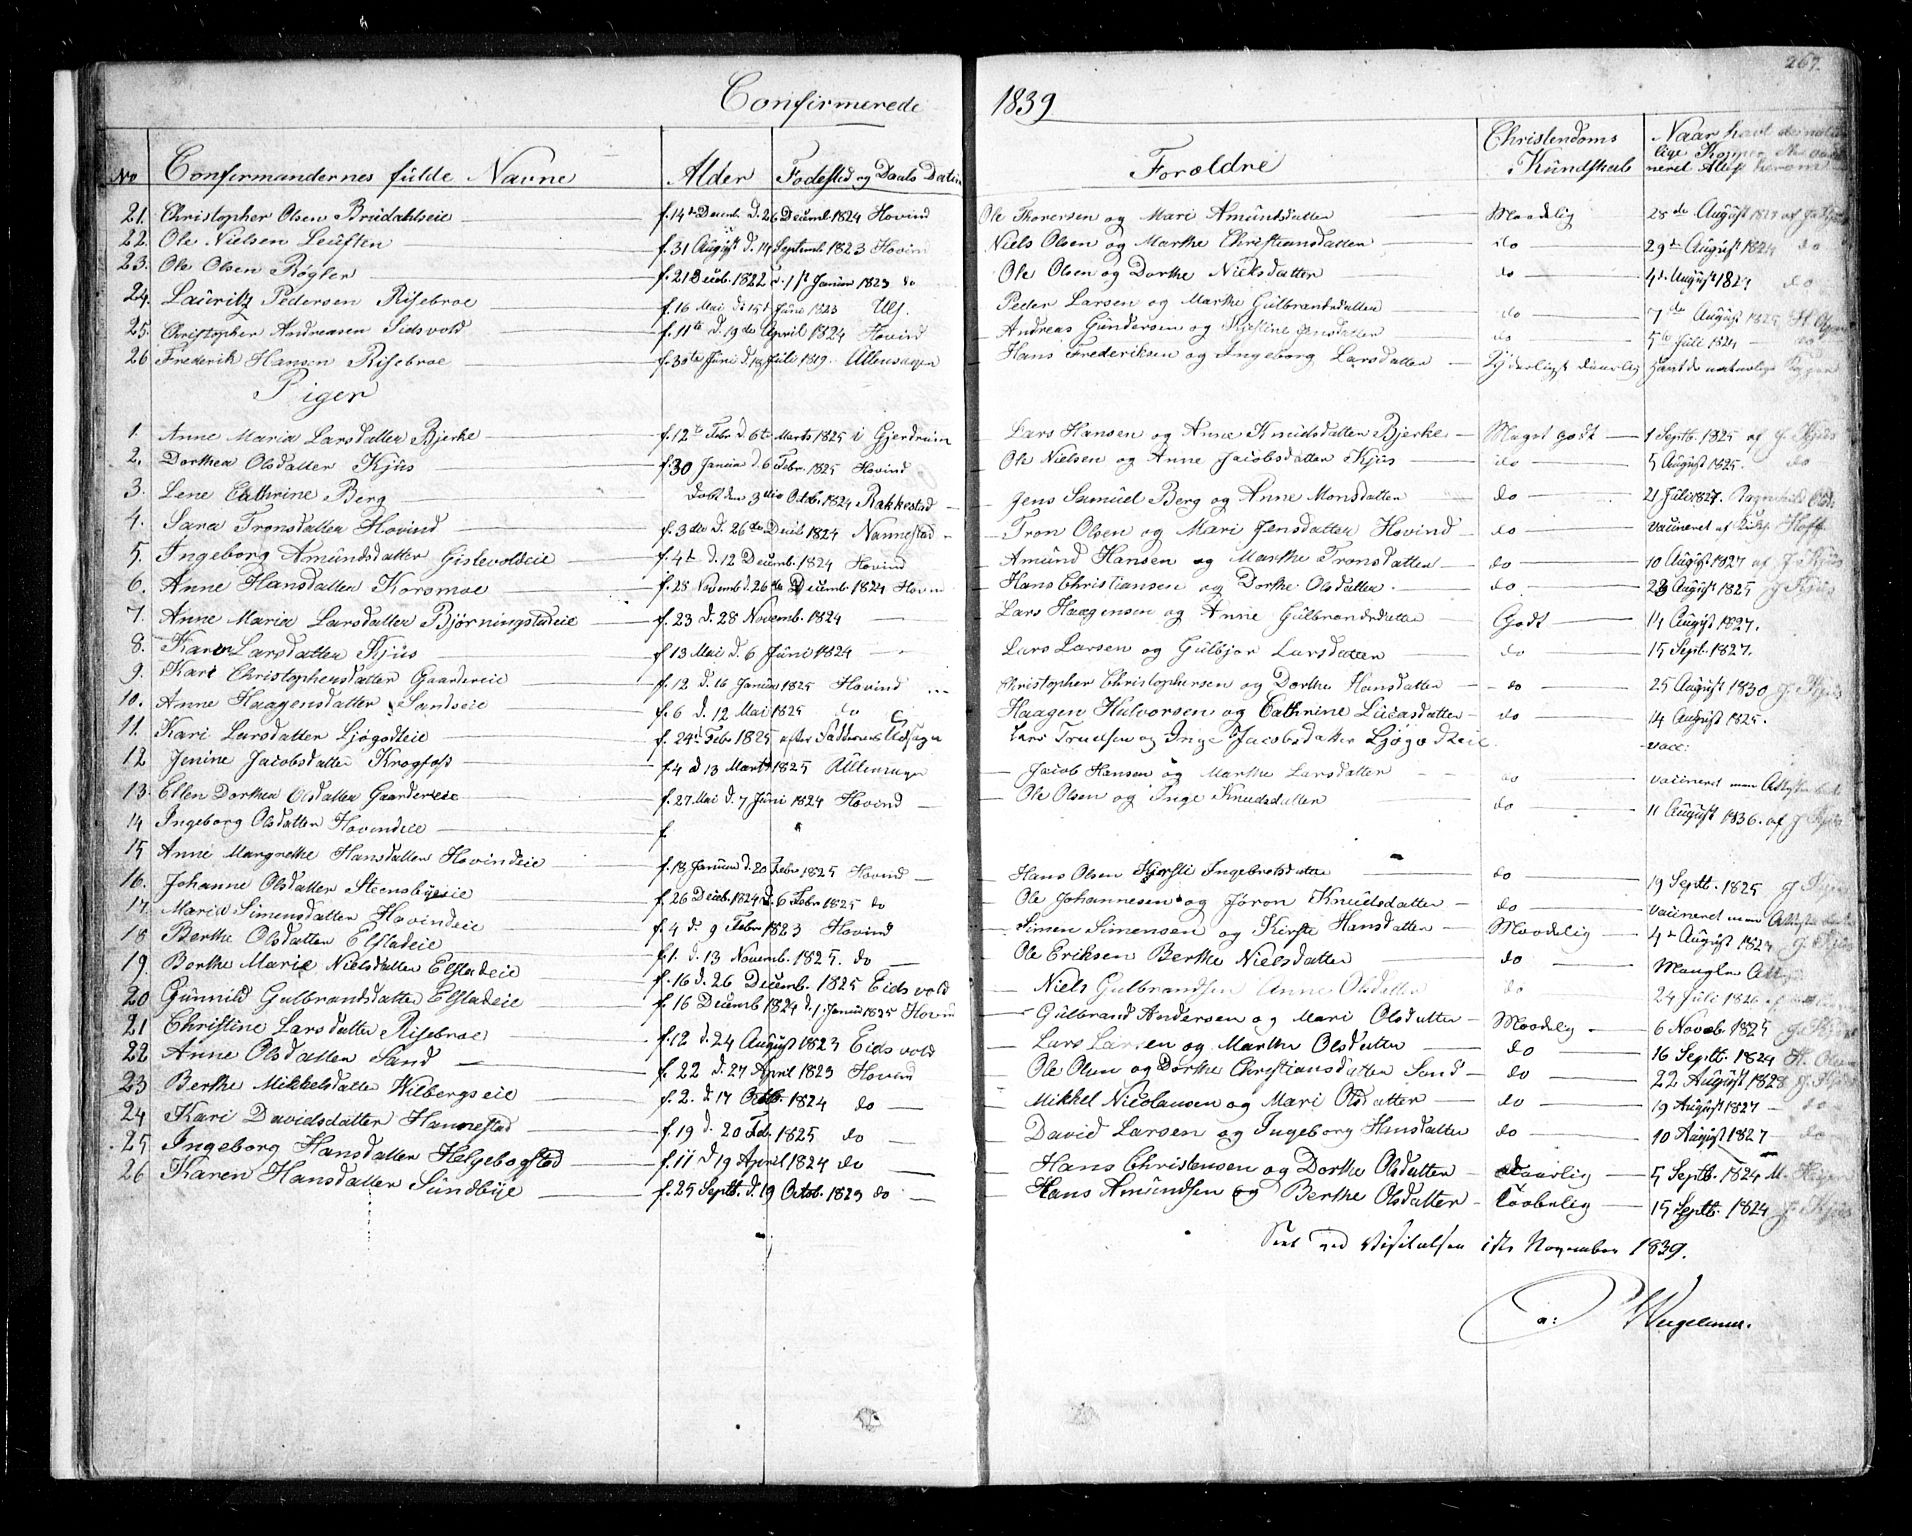 267.
Confirmerede 1839.
No Confirmandernes fulde Navne Alder Fødested og Daabs Datum Forældre Christendoms Kundskab Naar havt de naturlige Kopper eller vaccineret
21. Christopher Olsen Brudahlseie f. 14de Decemb. d. 26 Decemb. 1824 Hovind Ole Thorersen og Mari Amundsdatter Maadelig 28de August 1827 af
22. Ole Nielsen Leuften f. 31 August d. 14 Septemb. 1823 Hovind Niels Olsen og Marthe Christiansdatter do 29de August 1824 do
23. Ole Olsen Røgler f. 21 Decb. 1822 d. 1st Januar 1823 do Ole Olsen og Dorthe Nielsdatter do 4de August 1824 do
24. Lauritz Pedersen Risebroe f. 16 Mai d. 15de Juni 1823 Ull. Peder Larsen og Marthe Gulbrandsdatter do 7de August 1825
25. Christopher Andreasen Eidsvold f. 11te d. 19de April 1824 Hovind Andreas Gundersen og Kjestine Jensdatter do 5te Juli 1824 do
26 Frederik Hansen Risebroe f. 30te Juni d. Juli 1819. Ullensager Hans Frederiksen og Ingeborg Larsdatter Yderligst daarlig havt de naturlige Kopper
Piger
1. Anne Maria Larsdatter Bjerke f. 12te Febr. d. 6te Marts 1825 i Gjerdrum Lars Hansen og Anne Knudsdatter Bjerke Meget godt 1 Septb. 1825 af J. Kjus
2. Dorthea Olsdatter Kjus f. 30 Januar d. 6 Febr. 1825 Hovind Ole Nielsen og Anne Jacobsdatter Kjus do 5 August 1825. do
3. Lene Cathrine Berg Døbt den 3die Octob. 1824 Rakkestad Jens Samuel Berg og Anne Monsdatter do 21 Juli 1827.
4. Sara Tronsdatter Hovind f. 3die d. 26de Decb 1824 Nannestad Tron Olsen og Mari Jensdatter Hovind do vaccineret af Hoff
5. Ingeborg Amundsdatter Gislevoldeie f. 4de d. 12 Decemb. 1824 Hovind Amund Hansen og Marthe Tronsdatter do 10 August 1827 af J. Kjus
6. Anne Hansdatter Korsmoe f. 28 Novemb d. 26de Decemb. 1824 Hovind Hans Christiansen og Dorthe Olsdatter do. 23 August 1825 J. Kjus
7. Anne Maria Larsdatter Bjørningstadeie f. 23 d. 28 Novemb. 1824 Lars Haagensen og Anne Gulbrandsdatter Godt 14 August 1827.
8. Karen Larsdatter Kjus f. 13 Mai d. 6 Juni 1824 Lars Larsen og Gulbjor Larsdatter do 15 Sept. 1827.
9. Kari Christophersdatter Gaardereie f. 12 d. 16 Januar 1825 Hovind Christopher Christophersen og Dorthe Hansdatter do 25 August 1830 J. Kjus
10. Anne Haagensdatter Sandseie f. 6 d. 12 Mai 1825 do Haagen Halvorsen og Cathrine Lucasdatter do 14 August 1825.
11. Kari Larsdatter Ljøgodteie f. 24de Febr 1825 efter Fadderens Udsagn Lars Truelsen og Inge Jacobsdatter Ljøgodteie. vacc:
12 Jenine Jacobsdatter Krogfoss f. 4 d 13 Marts 1825 Ullensager Jacob Hansen og Marthe Larsdatter do vaccineret men Attesten
13. Ellen Dorthea Olsdatter Gaardereie f. 27 Mai d. 7 Juni 1824 Hovind Ole Olsen og Inge Knudsdatter do 11 August 1836. af J. Kjus
14 Ingeborg Olsdatter Hovindeie f.
15 Anne Margrethe Hansdatter Hovindeie f. 18 Januar d. 20 Febr 1825 Hovind Hans Olsen Kjersti Ingebretsdatter do 19 Septb. 1825 J. Kjus
16. Johanne Olsdatter Steensbyeeie f. 26 Decb. 1824 d. 6 Febr 1825 do Ole Johannesen og Jøron Knudsdatter do vaccineret men Attesten
17. Maria Simensdatter Hovindeie f. 4 d. 9 Febr 1823 Hovind Simen Simensen og Kirsti Hansdatter Maadelig 4de August 1824 J. Kjus
18 Berthe Olsdatter Elstadeie f. 1. d. 13 Novemb. 1825. do Ole Eriksen Berthe Nielsdatter do Mangler
19 Berthe Marie Nielsdatter Elstadeie f. 16 d. 26 Decemb. 1825 Eidsvold Niels Gulbrandsen Anne Olsdatter do 24 Juli 1826
20 Gunnild Gulbrandsdatter Elstadeie f. 16 Decemb 1824 d. 1 Januar 1825 Hovind Gulbrand Andersen og Mari Olsdatter Maadelig 6 Novb. 1825 J. Kjus
21 Christine Larsdatter Risebroe f. 12 d. 24 August 1823 Eidsvold Lars Larsen og Marthe Olsdatter do 16 Septb. 1824
22 Anne Olsdatter Sand f. 22 d. 27 April 1823 Hovind Ole Olsen og Dorthe Christiansdatter Sand do 22 August 1828 J. Kjus
23 Berthe Mikkelsdatter Wilbergseie f. 2. d. 17 Octb. 1824 do Mikkel Nicolausen og Mari Olsdatter do 19 August 1827 do
24 Kari Davidsdatter Hannestad f. 19 d. 20 Feb. 1825 do David Larsen og Ingeborg Hansdatter do 10 August 1827 do
25 Ingeborg Hansdatter Helgebostad f. 11 d 19 April 1824 do Hans Christensen og Dorthe Olsdatter daarlig 5 Septb. 1824
26 Karen Hansdatter Sundbye f. 25 Septb. d. 19 Octob. 1823 do Hans Amundsen og Berthe Olsdatter Taabelig 15 Septb. 1824 J. Kjus
Seet ved Visitatsen 1ste November 1839.